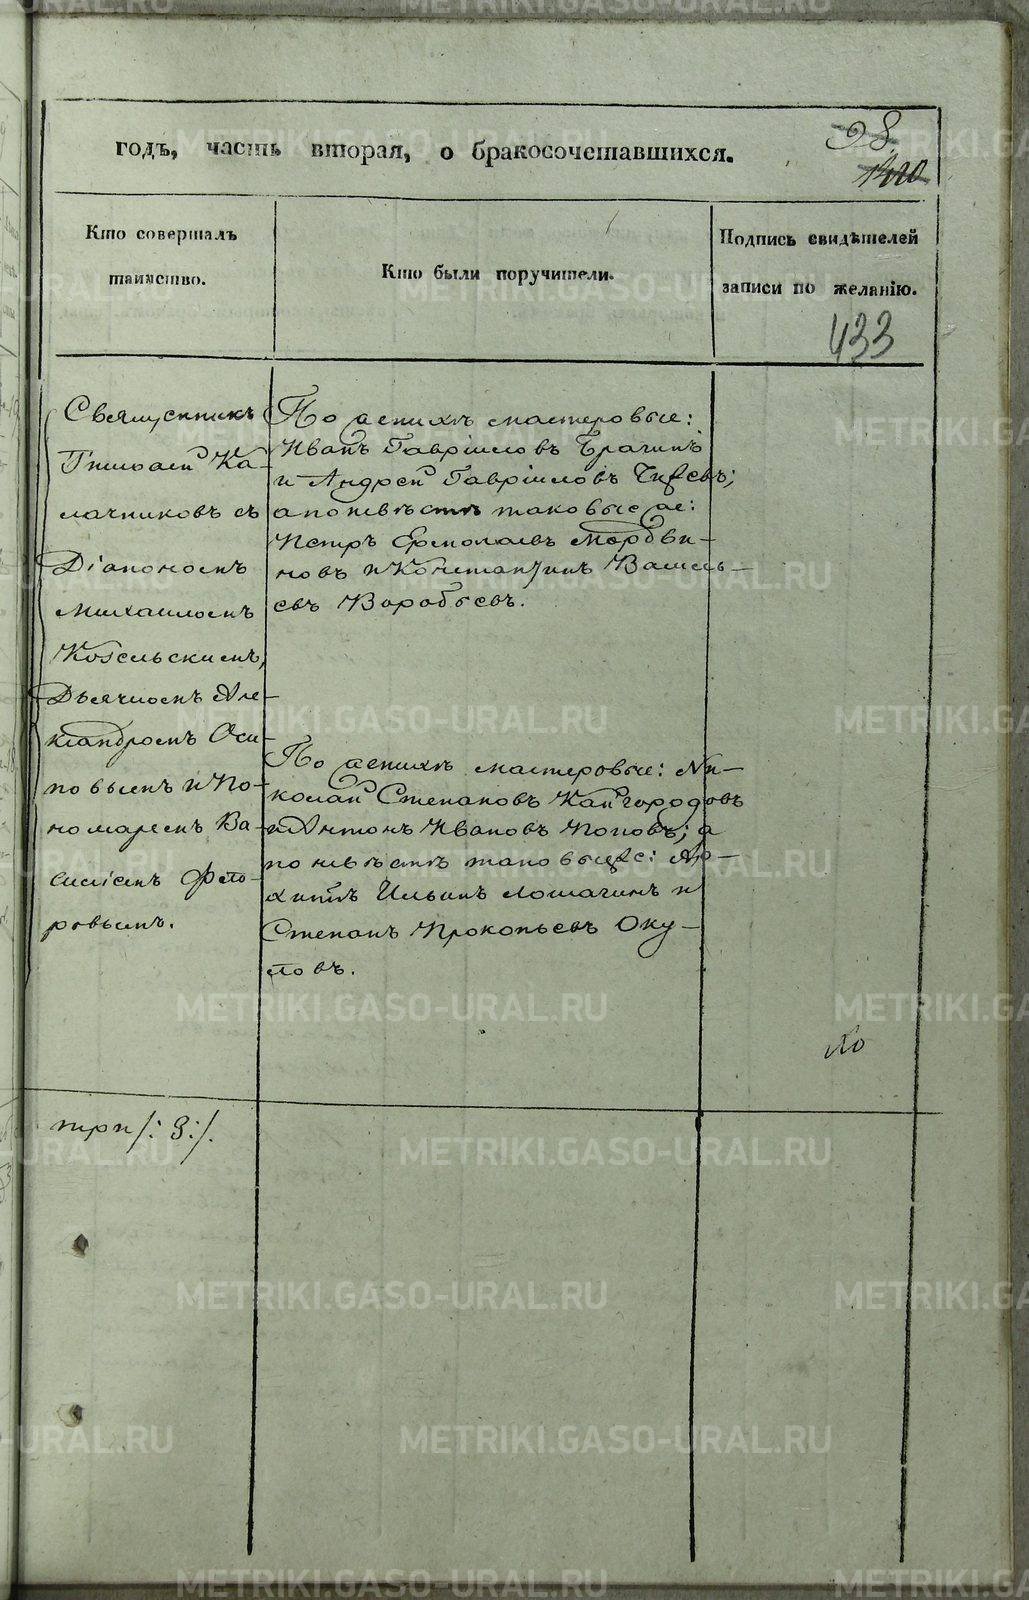 98
1420
годъ, часть вторая, о бракосочетавшихся.
Кто совершалъ
таинство.
Кто были поручители.
Подпись свидѣтелей
записи по желанію.
433
Священникъ
Ка-
лачниковъ съ
Діакономъ
Михаиломъ
Козельскимъ,
Дьячкомъ Але-
ксандромъ Оси-
повымъ и По-
номаремъ Ва-
силіемъ Фѳдо-
ровымъ.
По женихѣ мастеровые:
Иванъ Гавріиловъ Брагинъ
и Андрей Гавріиловъ
а по невѣстѣ таковые же:
Петръ Ермолаевъ Мордви-
новъ и Константинъ Василь-
евъ Воробьевъ.
По женихѣ мастеровые: Ни-
колай Степановъ Кайгородовъ
и Антонъ Ивановъ Поповъ; а
по невѣстѣ таковые же: Ар-
хипъ Ильинъ Лошагинъ и
Степанъ Прокопьевъ Оку-
ловъ.
по
три /: 3 :/.
METRIKI.GASO-URAL.RU